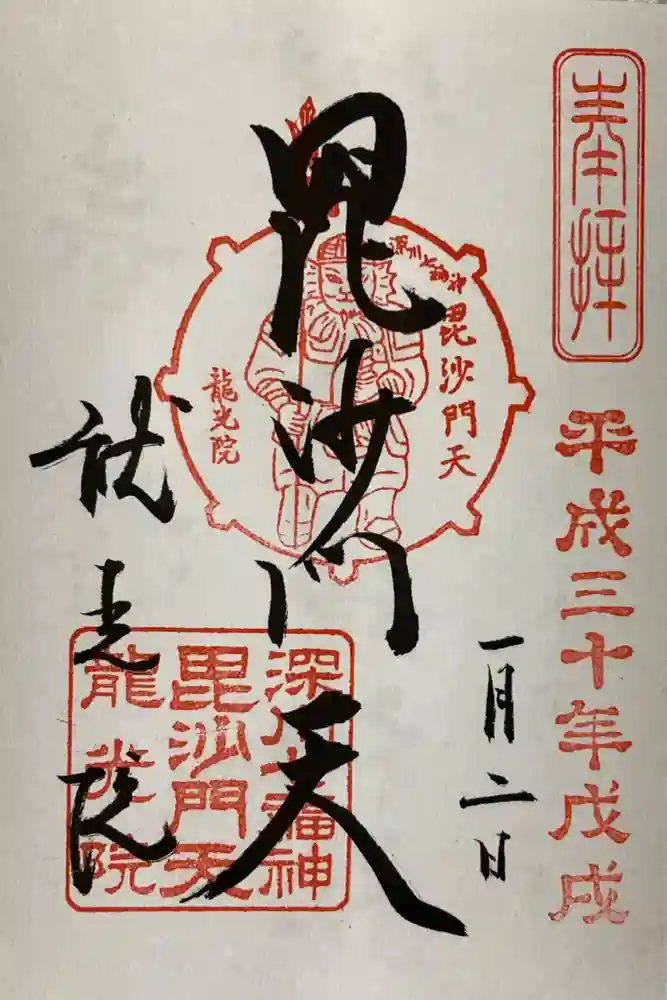 奉拝
平成三十年戊戌
一月二日
毘沙門天
龍光院
深川七福神
毘沙門天
龍光院
深川七福神
毘沙門天
龍光院